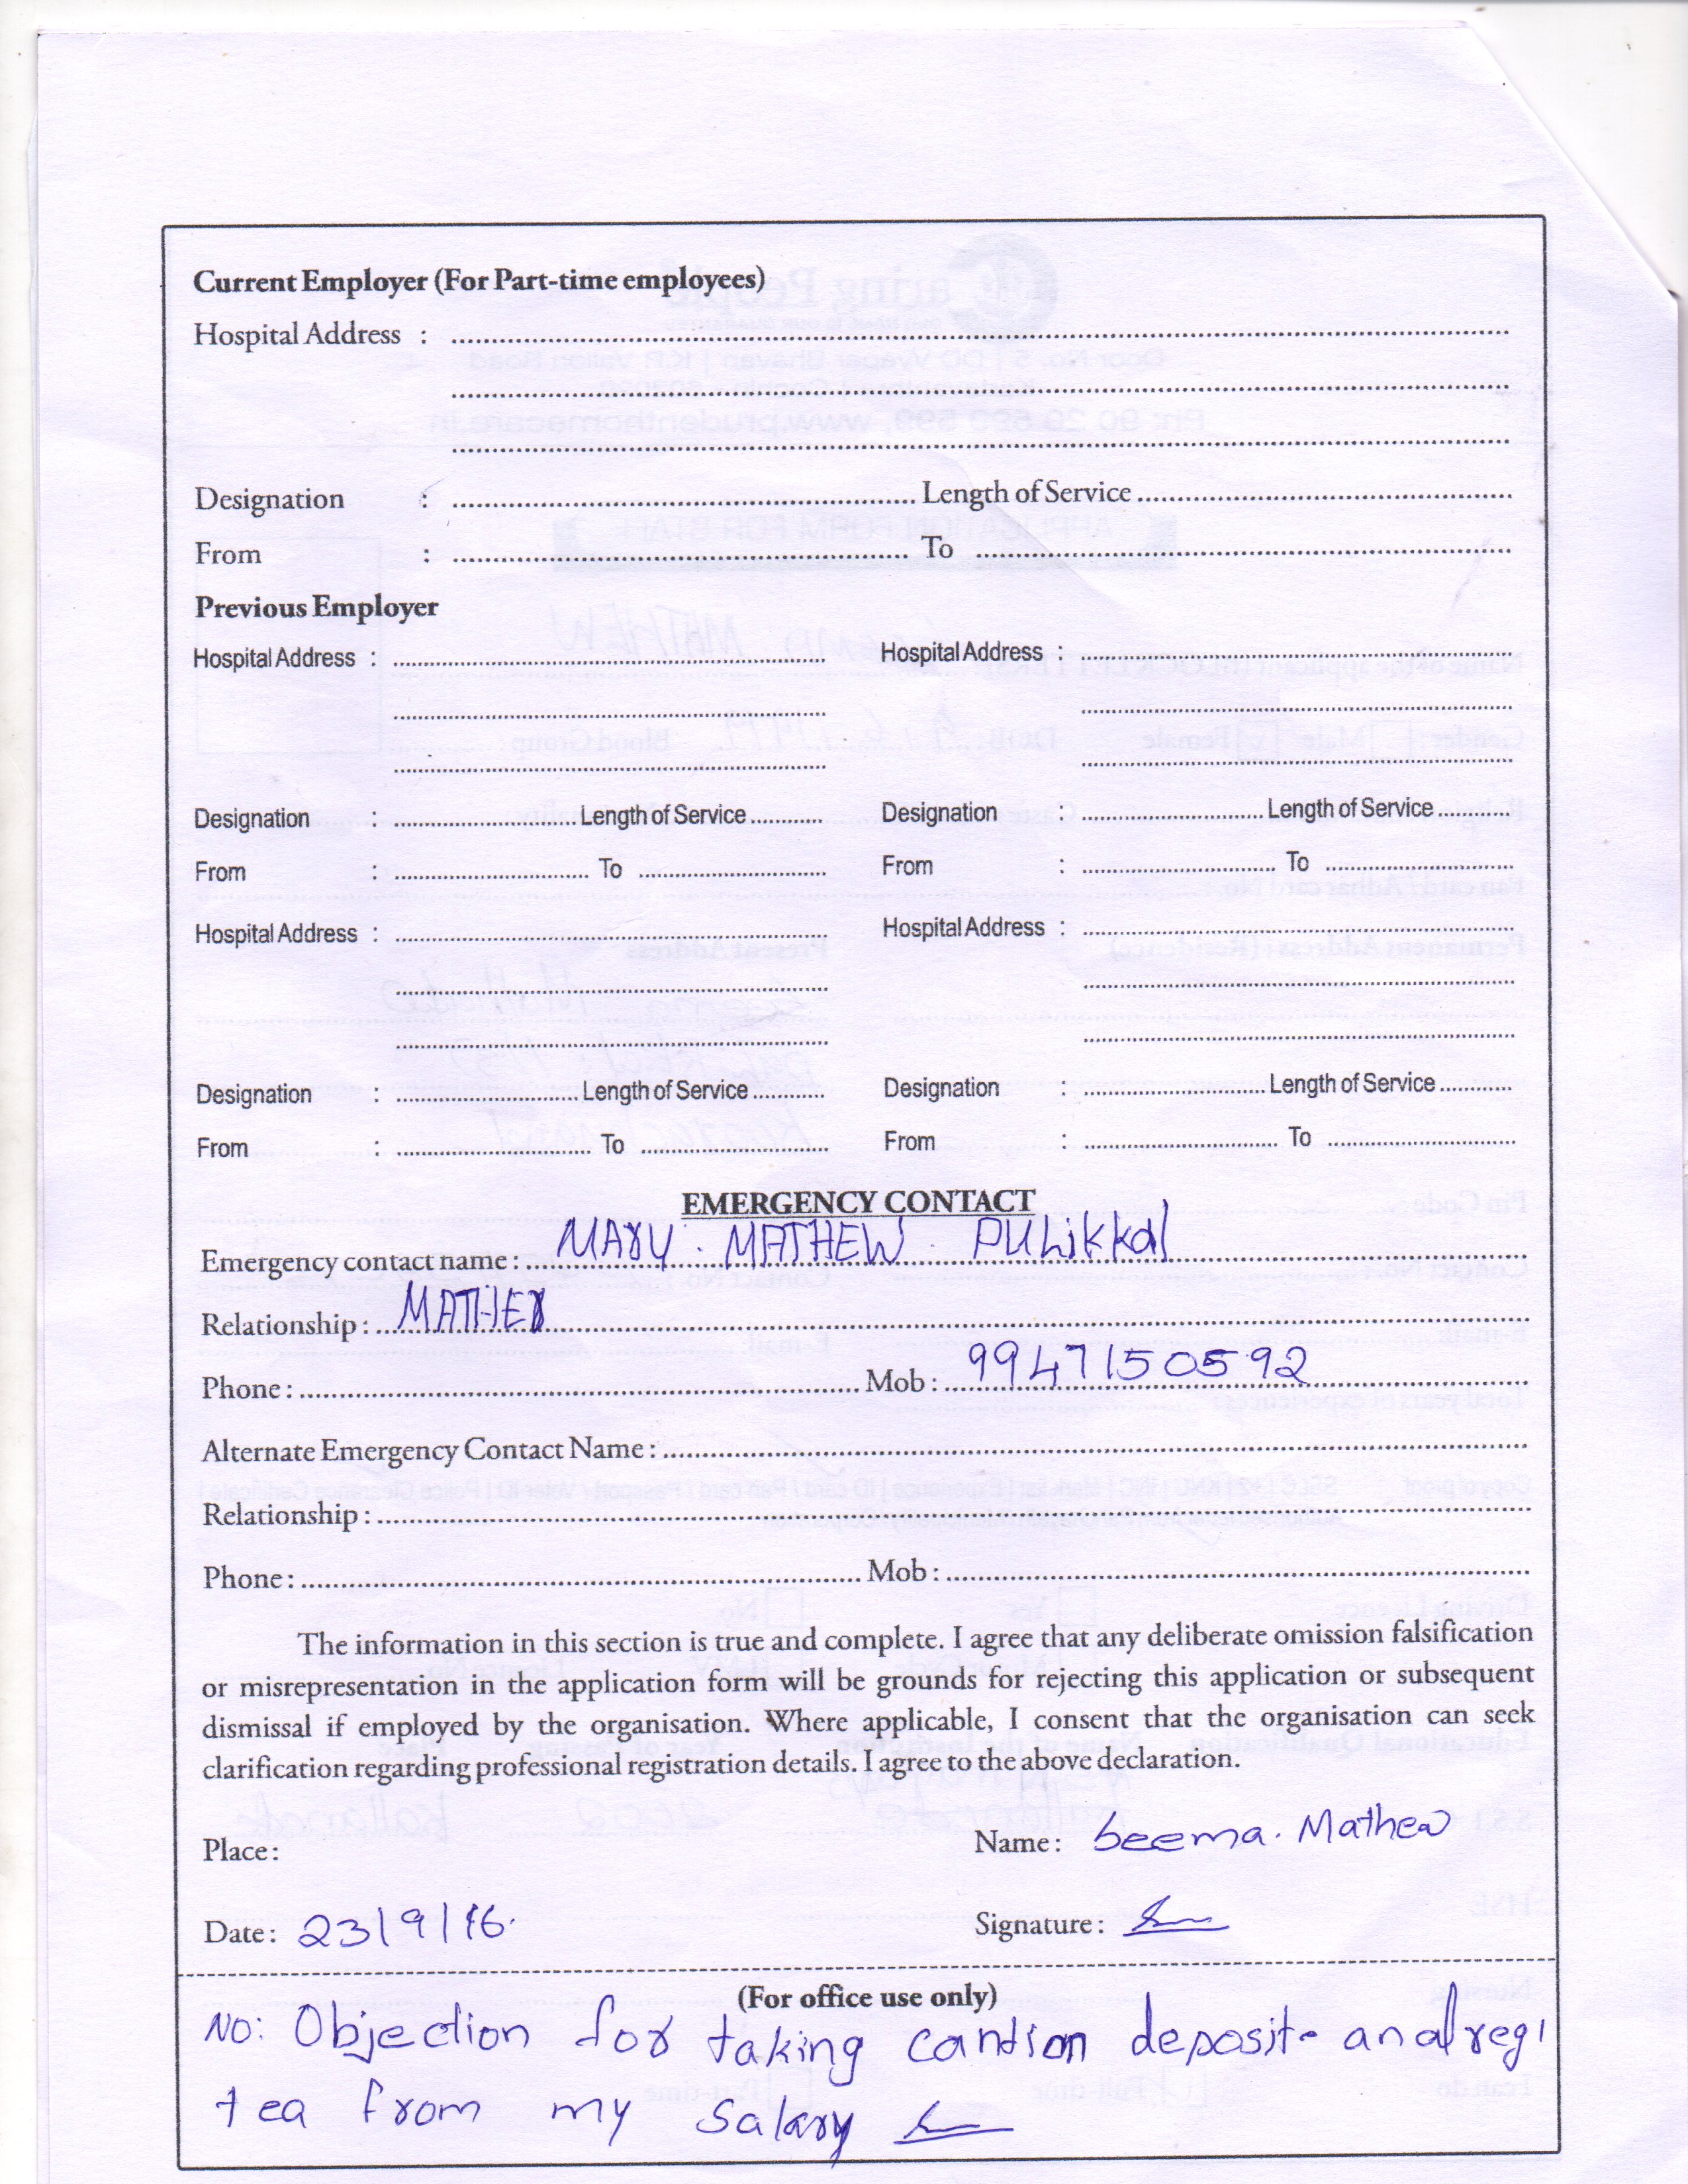 Current Employer (For Part-time employees)
Hospital Address :
Designation : Length of Service
From : To
Previous Employer
Hospital Address : Hospital Address :
Designation : Length of Service Designation : Length of Service
From : To From : To
Hospital Address : Hospital Address :
Designation : Length of Service Designation : Length of Service
From : To From : To
EMERGENCY CONTACT
Emergency contact name : MARY. MATHEW. PULikkal
Relationship : MATHER
Phone : Mob : 9947150592
Alternate Emergency Contact Name :
Relationship :
Phone : Mob :
The information in this section is true and complete. I agree that any deliberate omission falsification
or misrepresentation in the application form will be grounds for rejecting this application or subsequent
dismissal if employed by the organisation. Where applicable, I consent that the organisation can seek
clarification regarding professional registration details. I agree to the above declaration.
Place : Name : Seema. Mathew
Date : 23/9/16. Signature :
(For office use only)
NO: Objection for taking cantion deposit and regi
tea from my Salary